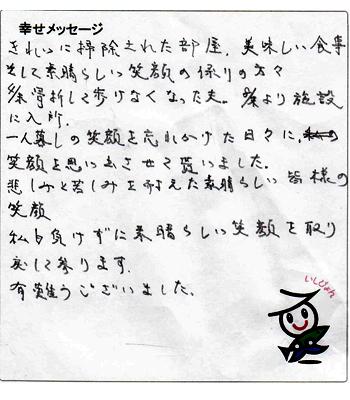 幸せメッセージ
きれいに掃除された部屋、美味しい食事
そして素晴らしい笑顔の係りの方々
骨折して歩けなくなった夫。より施設
に入所、
一人暮しの笑顔を忘れかけた日々に、
笑顔を思い出させて貰いました。
悲しみと苦しみを耐えた素晴らしい皆様の
笑顔
私も負けずに素晴らしい笑顔を取り
戻して参ります。
有難うございました。
いしぴょん